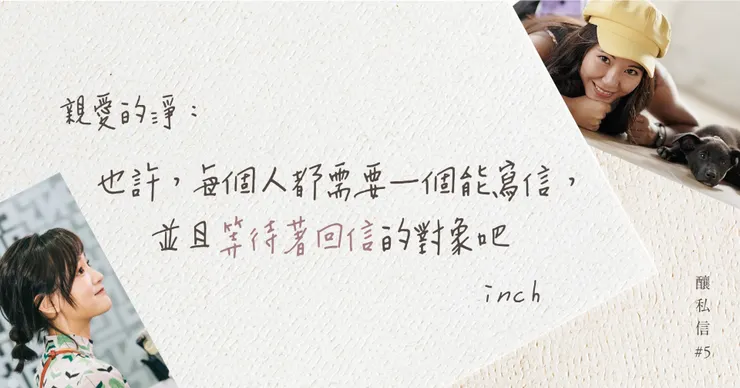 親愛的諍：
也許，每個人都需要一個能寫信，
並且等待著回信的對象吧
inch
釀私信
#5